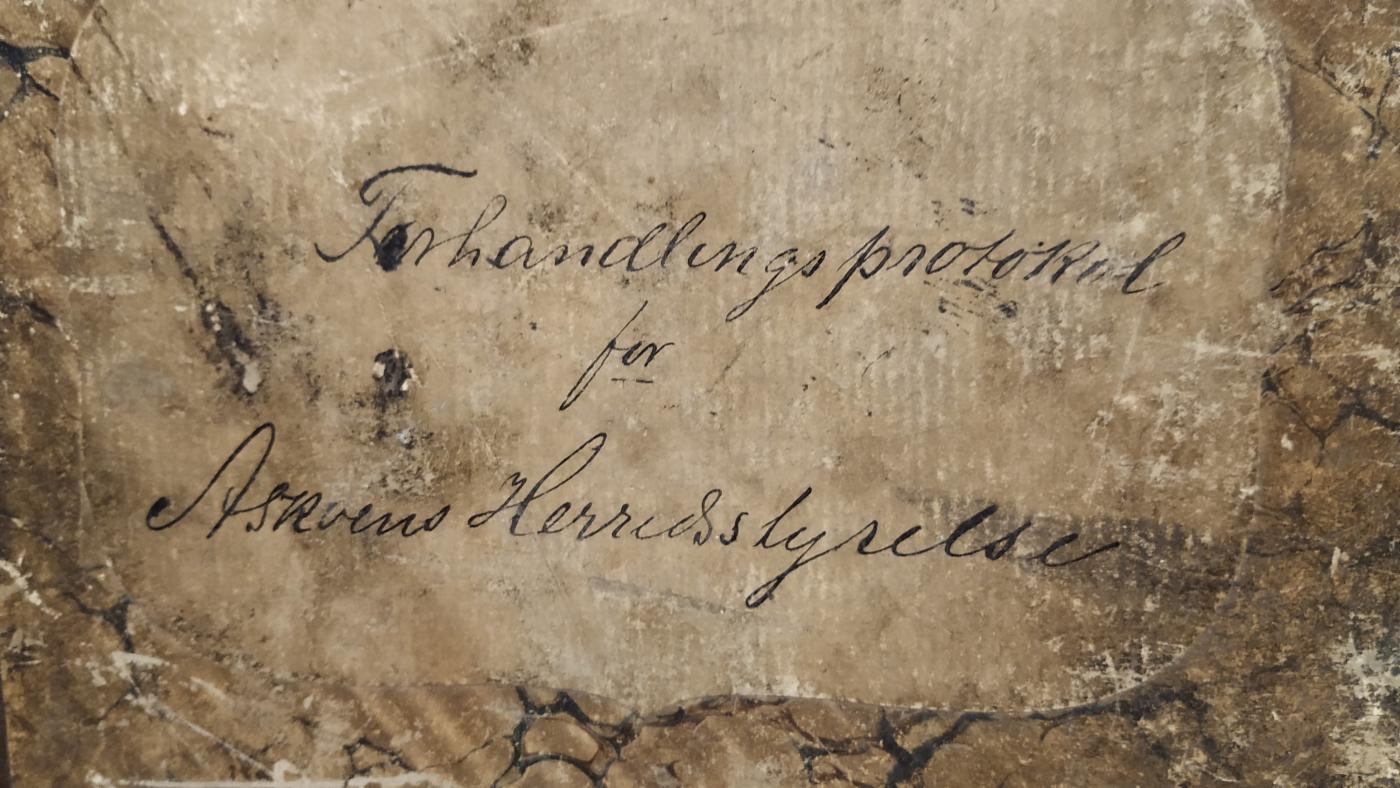 Forhandlingsprotokol
for
Askvens Herredsstyrelse